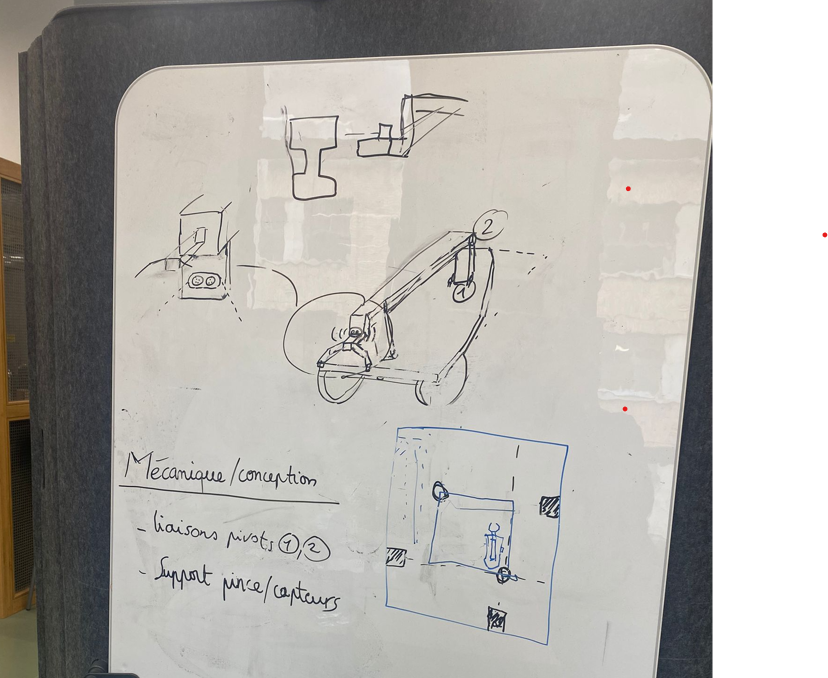 2
1
Mécanique/conception
- liaisons pivots ①,②
- Support pince/capteurs